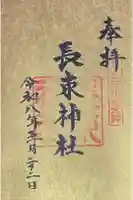 奉拝
長束神社
令和八年三月二十二日